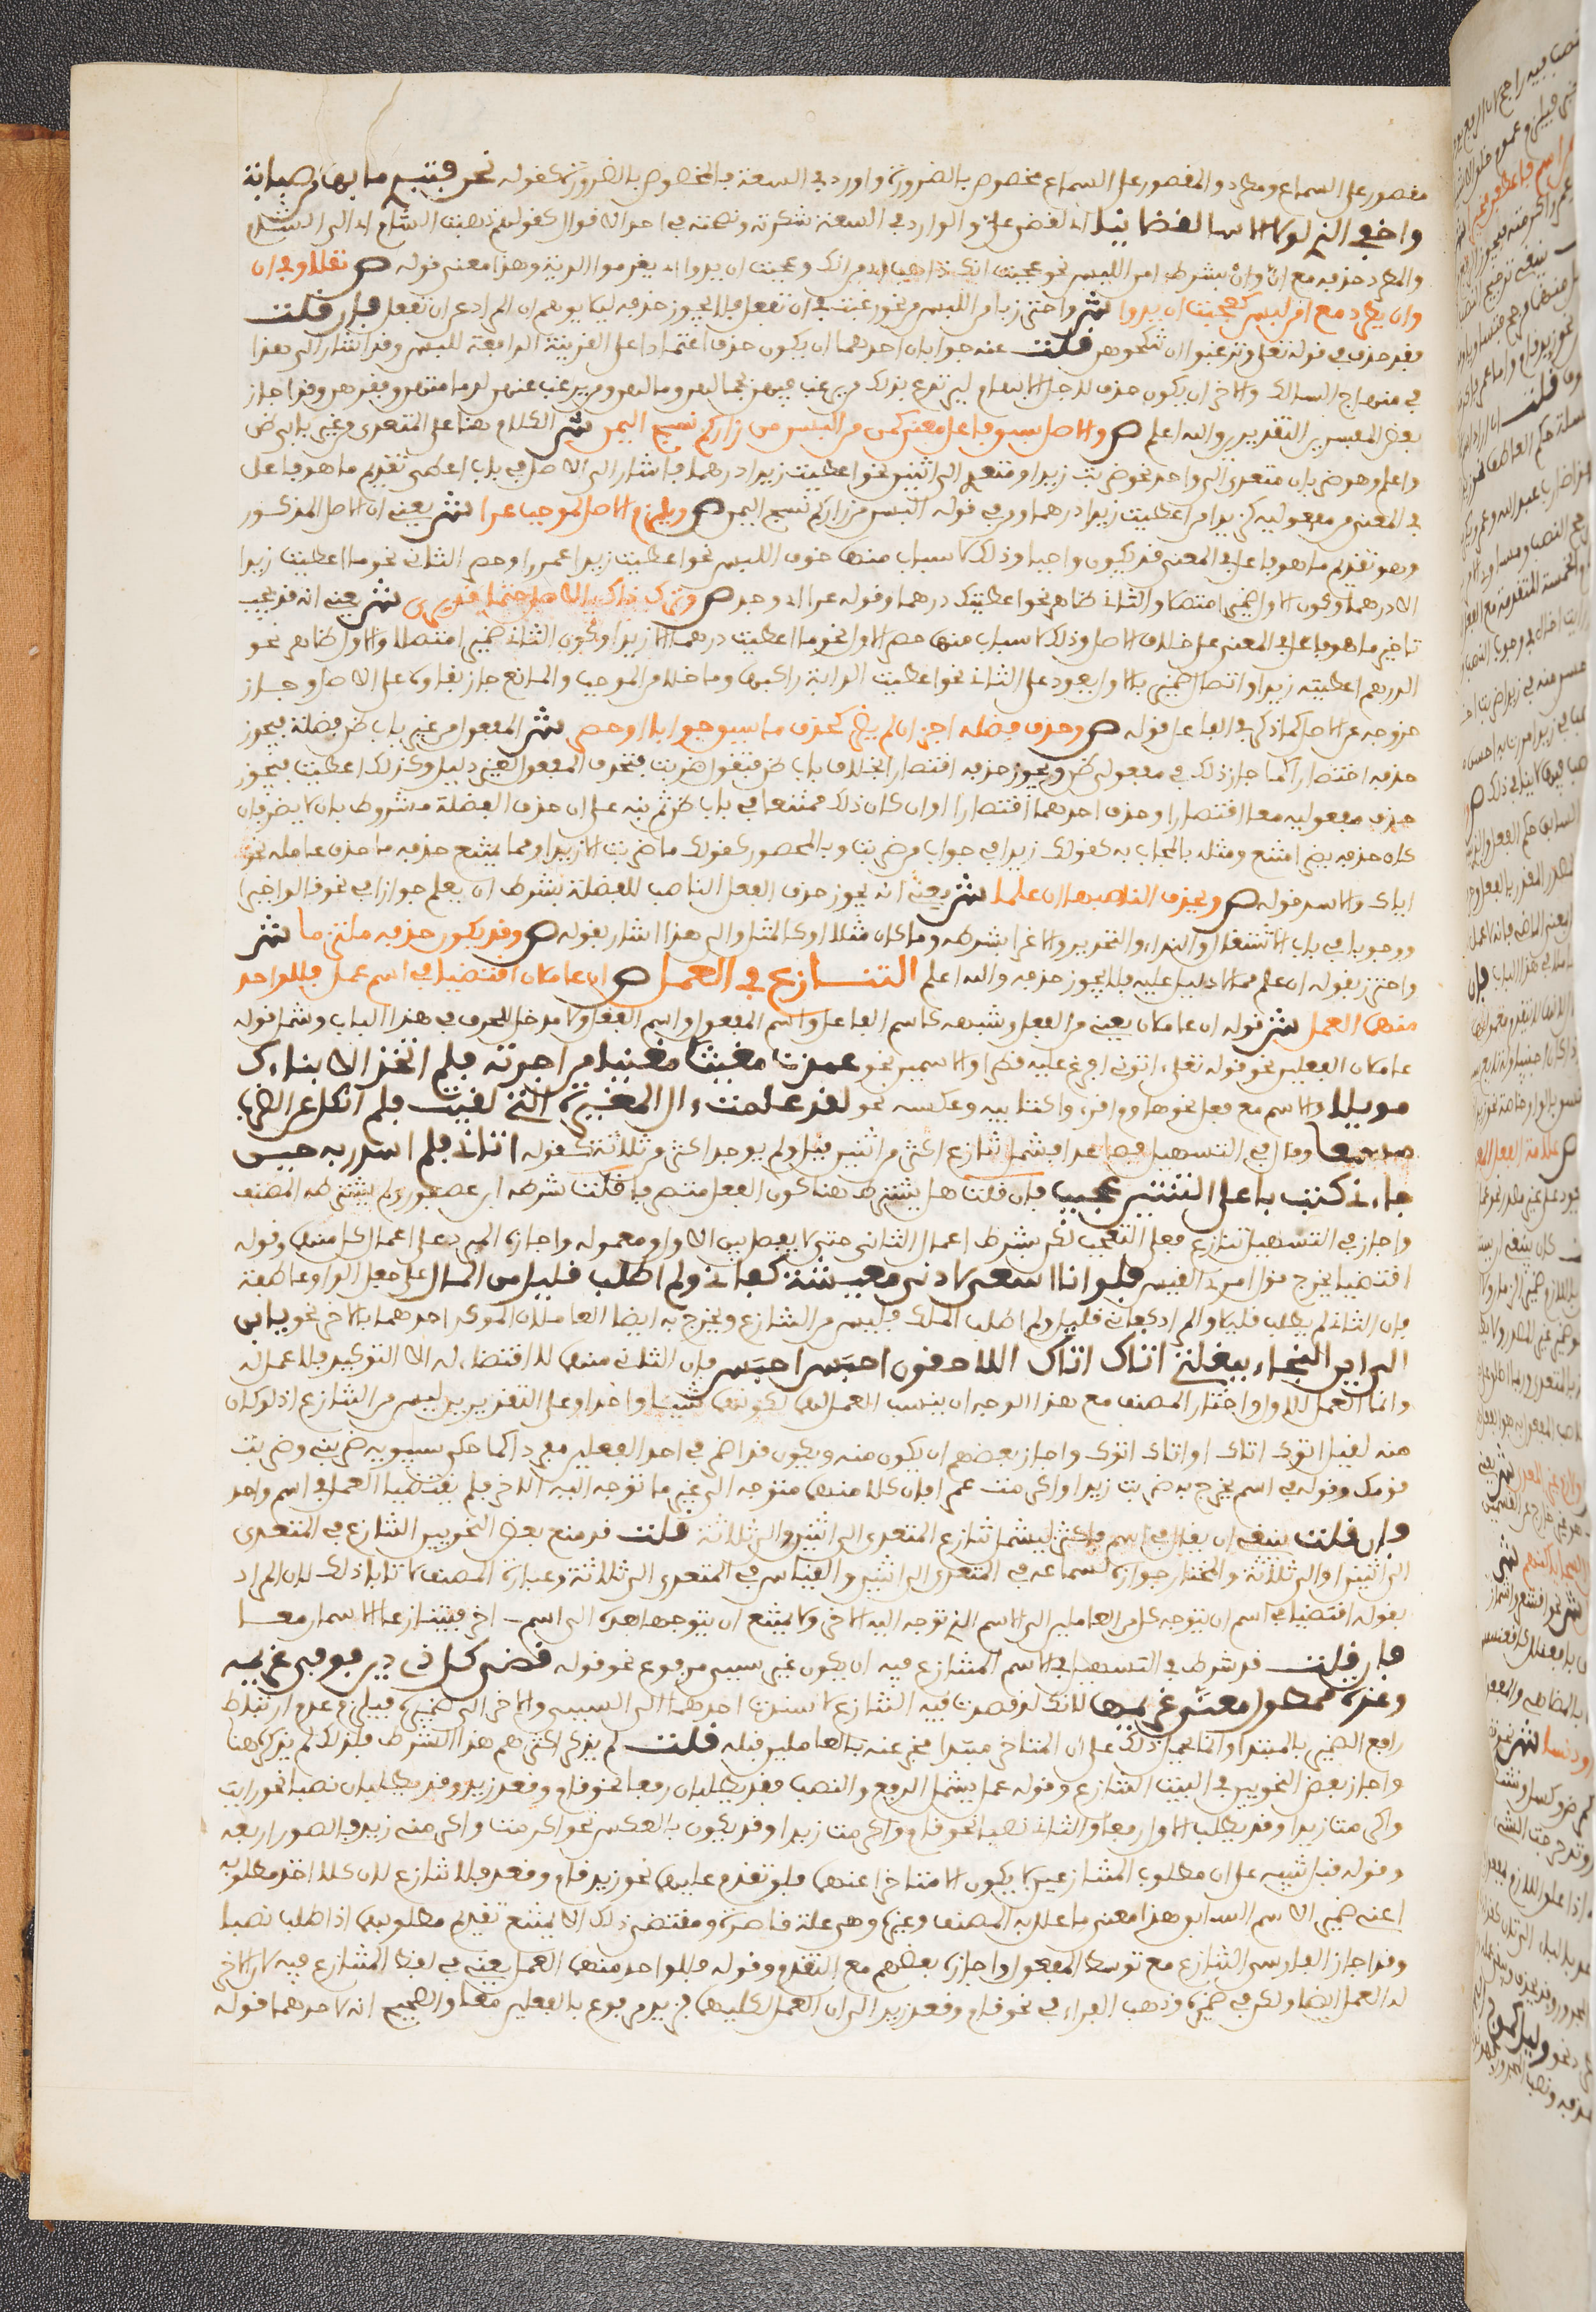 مقصور على السماع ومطرد والمقصور على السماع مخصوص بالضرورة وارد في السعة فالمخصوص بالضرورة كقوله نحن فتبدي ما بها من صبابة
واخفي الذي لولا الاسا لقضاني اي لقضى علي والوارد في السعة شكرته ونصحته في احد الاقوال كقولهم ذهبت الشام اي الى الشام
والمطرد حذفه مع أنّ وأنْ بشرط امن اللبس نحو عجبت انك ذاهب اي من انك وعجبت ان يدوا اي يغرموا الدية وهذا معنى قوله ص نقلا وفي ان
وان يطرد مع امن لبس كعجبت ان يدوا ش واحترز بامن اللبس من نحو رغبت في ان تفعل فلا يجوز حذفه ليلا يوهم ان المراد عن ان تفعل فان قلت
فقد حذف في قوله تعلى وترغبون ان تنكحوهن قلت عنه جوابان احدهما ان يكون حذف اعتمادا على القرينة الرافعة للبس وقد اشار الى هذا
في منهاج السالك والاخر ان يكون حذف لاجل الابهام ليرتدع بذلك من يرغب فيهن لجمالهن ومالهن ومن يرغب عنهن لدمامتهن وفقرهن وقد اجاز
بعض المفسرين التقديرين والله اعلم ص والاصل سبق فاعل معنى كمن من البسن من زاركم نسج اليمن ش الكلام هنا على المتعدي من غير باب ظن
واعلم وهو ضربان متعدي الى واحد نحو ضربت زيدا ومتعد الى اثنين نحو اعطيت زيدا درهما فاشار الى ان الاصل في باب اعطى تقديم ما هو فاعل
في المعنى من مفعوليه كزيد من اعطيت زيدا درهما ومن في قوله البسن من زاركم نسج اليمن ص ويلزم الاصل لموجب عرا ش يعني ان الاصل المذكور
وهو تقديم ما هو فاعل في المعنى قد يكون واجبا وذلك لاسباب منها خوف اللبس نحو اعطيت زيدا عمرا وحصر الثاني نحو ما اعطيت زيدا
الا درهما وكون الاول ضميرا متصلا والثاني ظاهر نحو اعطيتك درهما وقوله عرا اي وجد ص وترك ذاك الاصل حتما قد يرى ش يعني انه قد يجب
تاخير ما هو فاعل في المعنى على خلاف الاصل وذلك لاسباب منها حصر الاول نحو ما اعطيت درهما الا زيدا وكون الثاني ضميرا متصلا والاول ظاهر نحو
الدرهم اعطيته زيدا واتصال ضمير بالاول يعود على الثاني نحو اعطيت الدابة راكبها وما خلا من الموجب والمانع جاز بقاؤه على الاصل وجاز
خروجه عن الاصل كما ذكر في الفاعل قوله ص وحذف فضلة اجز ان لم يضر كحذف ما سيق جوابا او حصر ش المفعول من غير باب ظن فضلة فيجوز
حذفه اختصارا كما جاز ذلك في مفعولي ظن ويجوز حذفه اقتصارا بخلاف باب ظن فتقول ضربت فتحذف المفعول لغير دليل وكذلك اعطيت فيجوز
حذف مفعوليه معا اقتصارا وحذف احدهما اقتصارا وان كان ذلك ممتنعا في باب ظن ثم نبه على ان حذف الفضلة مشروط بان لا يضر فان
كان حذفه يضر امتنع ومثله بالمجاب به كقولك زيدا في جواب من ضربت وبالمحصور كقولك ما ضربت الا زيدا ومما يمتنع حذفه ما حذف عامله نحو
اياك والاسد قوله ص ويحذف الناصبها ان علما ش يعني انه يجوز حذف الفعل الناصب للفضلة بشرط ان يعلم جوازا في نحو
ووجوبا في باب الاشتغال والنداء والتحذير والاغراء بشرطه وما كان مثلا او كالمثل والى هذا اشار بقوله ص وقد يكون حذفه ملتزما ش
واحترز بقوله ان علم مما لا دليل عليه فلا يجوز حذفه والله اعلم التنازع في العمل ص ان عاملان اقتضيا في اسم عمل فللواحد
منهما العمل ش قوله ان عاملان يعني من الفعل وشبهه كاسم الفاعل واسم المفعول واسم الفعل ولا مدخل للحرف في هذا الباب وشمل قوله
عاملان الفعلين نحو قوله تعلى اتوني افرغ عليه قطرا والاسمين نحو عهدت مغيثا مغنيا من اجرته فلم اتخذ الا فناءك
موئلا والاسم مع فعل نحو هاؤم اقرءوا كتابيه وعكسه نحو لقد علمت اولى المغيرة انني لقيت فلم انكل عن الضرب
مسمعا وقال في التسهيل فصاعدا فشمل تنازع اكثر من اثنين قيل ولم يوجد اكثر من ثلاثة كقوله اتاني فلم اسرر به حين
جاءني كتاب باعلى القنتين عجيب فان قلت هل يشترط هنا كون الفعل متصرفا قلت شرطه ابن عصفور ولم يشترطه المصنف
واجاز في التسهيل تنازع فعلي التعجب لكن بشرط اعمال الثاني حتى لا يفصل بين الاول ومعموله واجازه المبرد على اعمال كل منهما وقوله
اقتضيا يخرج قول امرئ القيس فلو انما اسعى لادنى معيشة كفاني ولم اطلب قليل من المال على جعل الواو عاطفة
فان الثاني لم يطلب قليلا والمراد كفاني قليل ولم اطلب الملك فليس من التنازع ويخرج به ايضا العاملان الموكد احدهما بالاخر نحو فاين
الى اين النجاء ببغلتي اتاك اتاك اللاحقون احبس احبس فان الثاني منهما لا اقتضاء له الا التوكيد فلا عمل له
وانما العمل للاول واختار المصنف مع هذا الوجه ان ينسب العمل لهما لكونهما شيئا واحدا وعلى التقديرين ليس من التنازع اذ لو كان
منه لقيل اتوك اتاك او اتاك اتوك واجاز بعضهم ان يكون منه ويكون قد اضمر في احد الفعلين مفردا كما حكى سيبويه ضربني وضربت
قومك وقوله في اسم يخرج به ضربت زيدا واكرمت عمرا فان كلا منهما متوجه الى غير ما توجه اليه الاخر فلم يقتضيا العمل في اسم واحد
فان قلت ينبغي ان يقال في اسم فاكثر ليشمل تنازع المتعدي الى اثنين والى ثلاثة قلت قد منع بعض النحويين التنازع في المتعدي
الى اثنين والى ثلاثة والمختار جوازه لسماعه في المتعدي الى اثنين والقياس في المتعدي الى ثلاثة وعبارة المصنف لا تابا ذلك لان المراد
بقوله اقتضيا في اسم ان يتوجه كل من العاملين الى الاسم الذي توجه اليه الاخر ولا يمتنع ان يتوجها بعده الى اسم اخر فيتنازعا الاسمان معا
فان قلت قد شرط في التسهيل في الاسم المتنازع فيه ان يكون غير سببي مرفوع نحو قوله قضى كل ذي دين فوفى غريمه
وعزة ممطول معنى غريمها لانك لو قصدت فيه التنازع لاسندت احدهما الى السببي والاخر الى ضميره فيلزم عدم ارتباط
رافع الضمير بالمبتدا وانما يحمل ذلك على ان المتاخر مبتدا مخبر عنه بالعاملين قبله قلت لم يذكر اكثرهم هذا الشرط فلذلك لم يذكره هنا
واجاز بعض النحويين في البيت التنازع وقوله عمل يشمل الرفع والنصب فقد يطلبان رفعا نحو قام وقعد زيد وقد يطلبان نصبا نحو رايت
واكرمت زيدا وقد يطلب الاول رفعا والثاني نصبا نحو قام واكرمت زيدا وقد يكون بالعكس نحو اكرمت واكرمني زيد فالصور اربعة
وقوله قبل تنبيه على ان مطلوب المتنازعين لا يكون الا متاخرا عنهما فلو تقدم عليهما نحو زيد قام وقعد فلا تنازع لان كلا اخذ مطلوبه
اعني ضمير الاسم السابق هذا معنى ما علل به المصنف وغيره وهي علة قاصرة ومقتضى ذلك ان لا يمتنع تقديم مطلوبهما اذا طلب نصبا
وقد اجاز الفارسي التنازع مع توسط المفعول واجازه بعضهم مع التقدم وقوله فللواحد منهما العمل يعني في لفظ المتنازع فيه لان الاخر
له العمل ايضا ولكن في ضميره وذهب الفراء في نحو قام وقعد زيد الى ان العمل لكليهما فزيد مرفوع بالفعلين معا والصحيح انه لاحدهما قوله